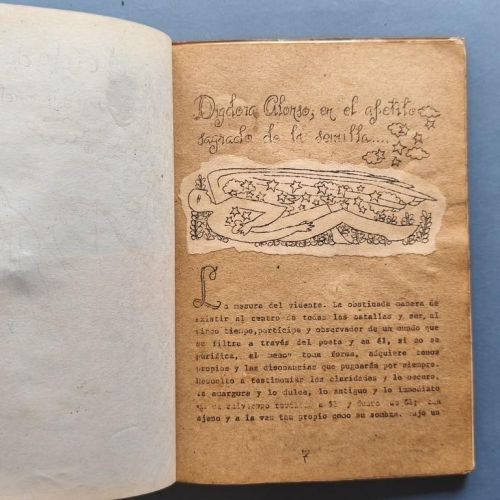 Digdora Alonso, en el apetito
sagrado de la semilla....
La mesura del vidente. La obstinada manera de
existir al centro de todas las batallas y ser, al
mismo tiempo, partícipe y observador de un mundo que
se filtra a través del poeta y en él, si no se
purifica, al menos toma forma, adquiere tonos
propios y las disonancias que pugnarán por siempre.
Resuelto a testimoniar las claridades y lo oscuro,
la amargura y lo dulce, lo antiguo y lo inmediato
ajeno y a la vez tan propio como su sombra. Bajo un
7